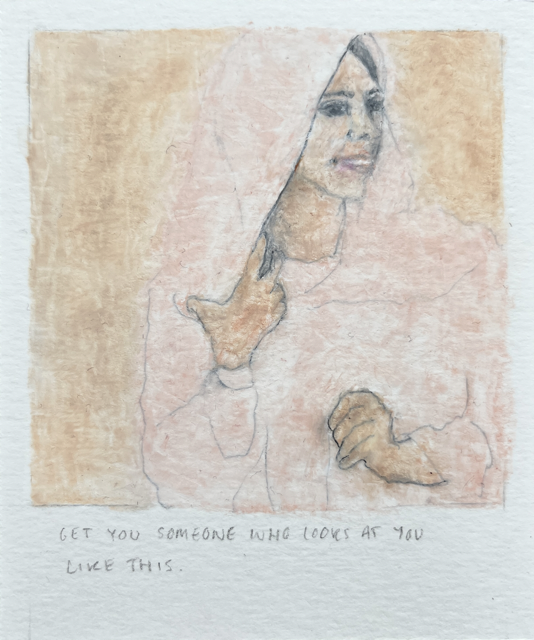 GET YOU SOMEONE WHO LOOKS AT YOU
LIKE THIS.